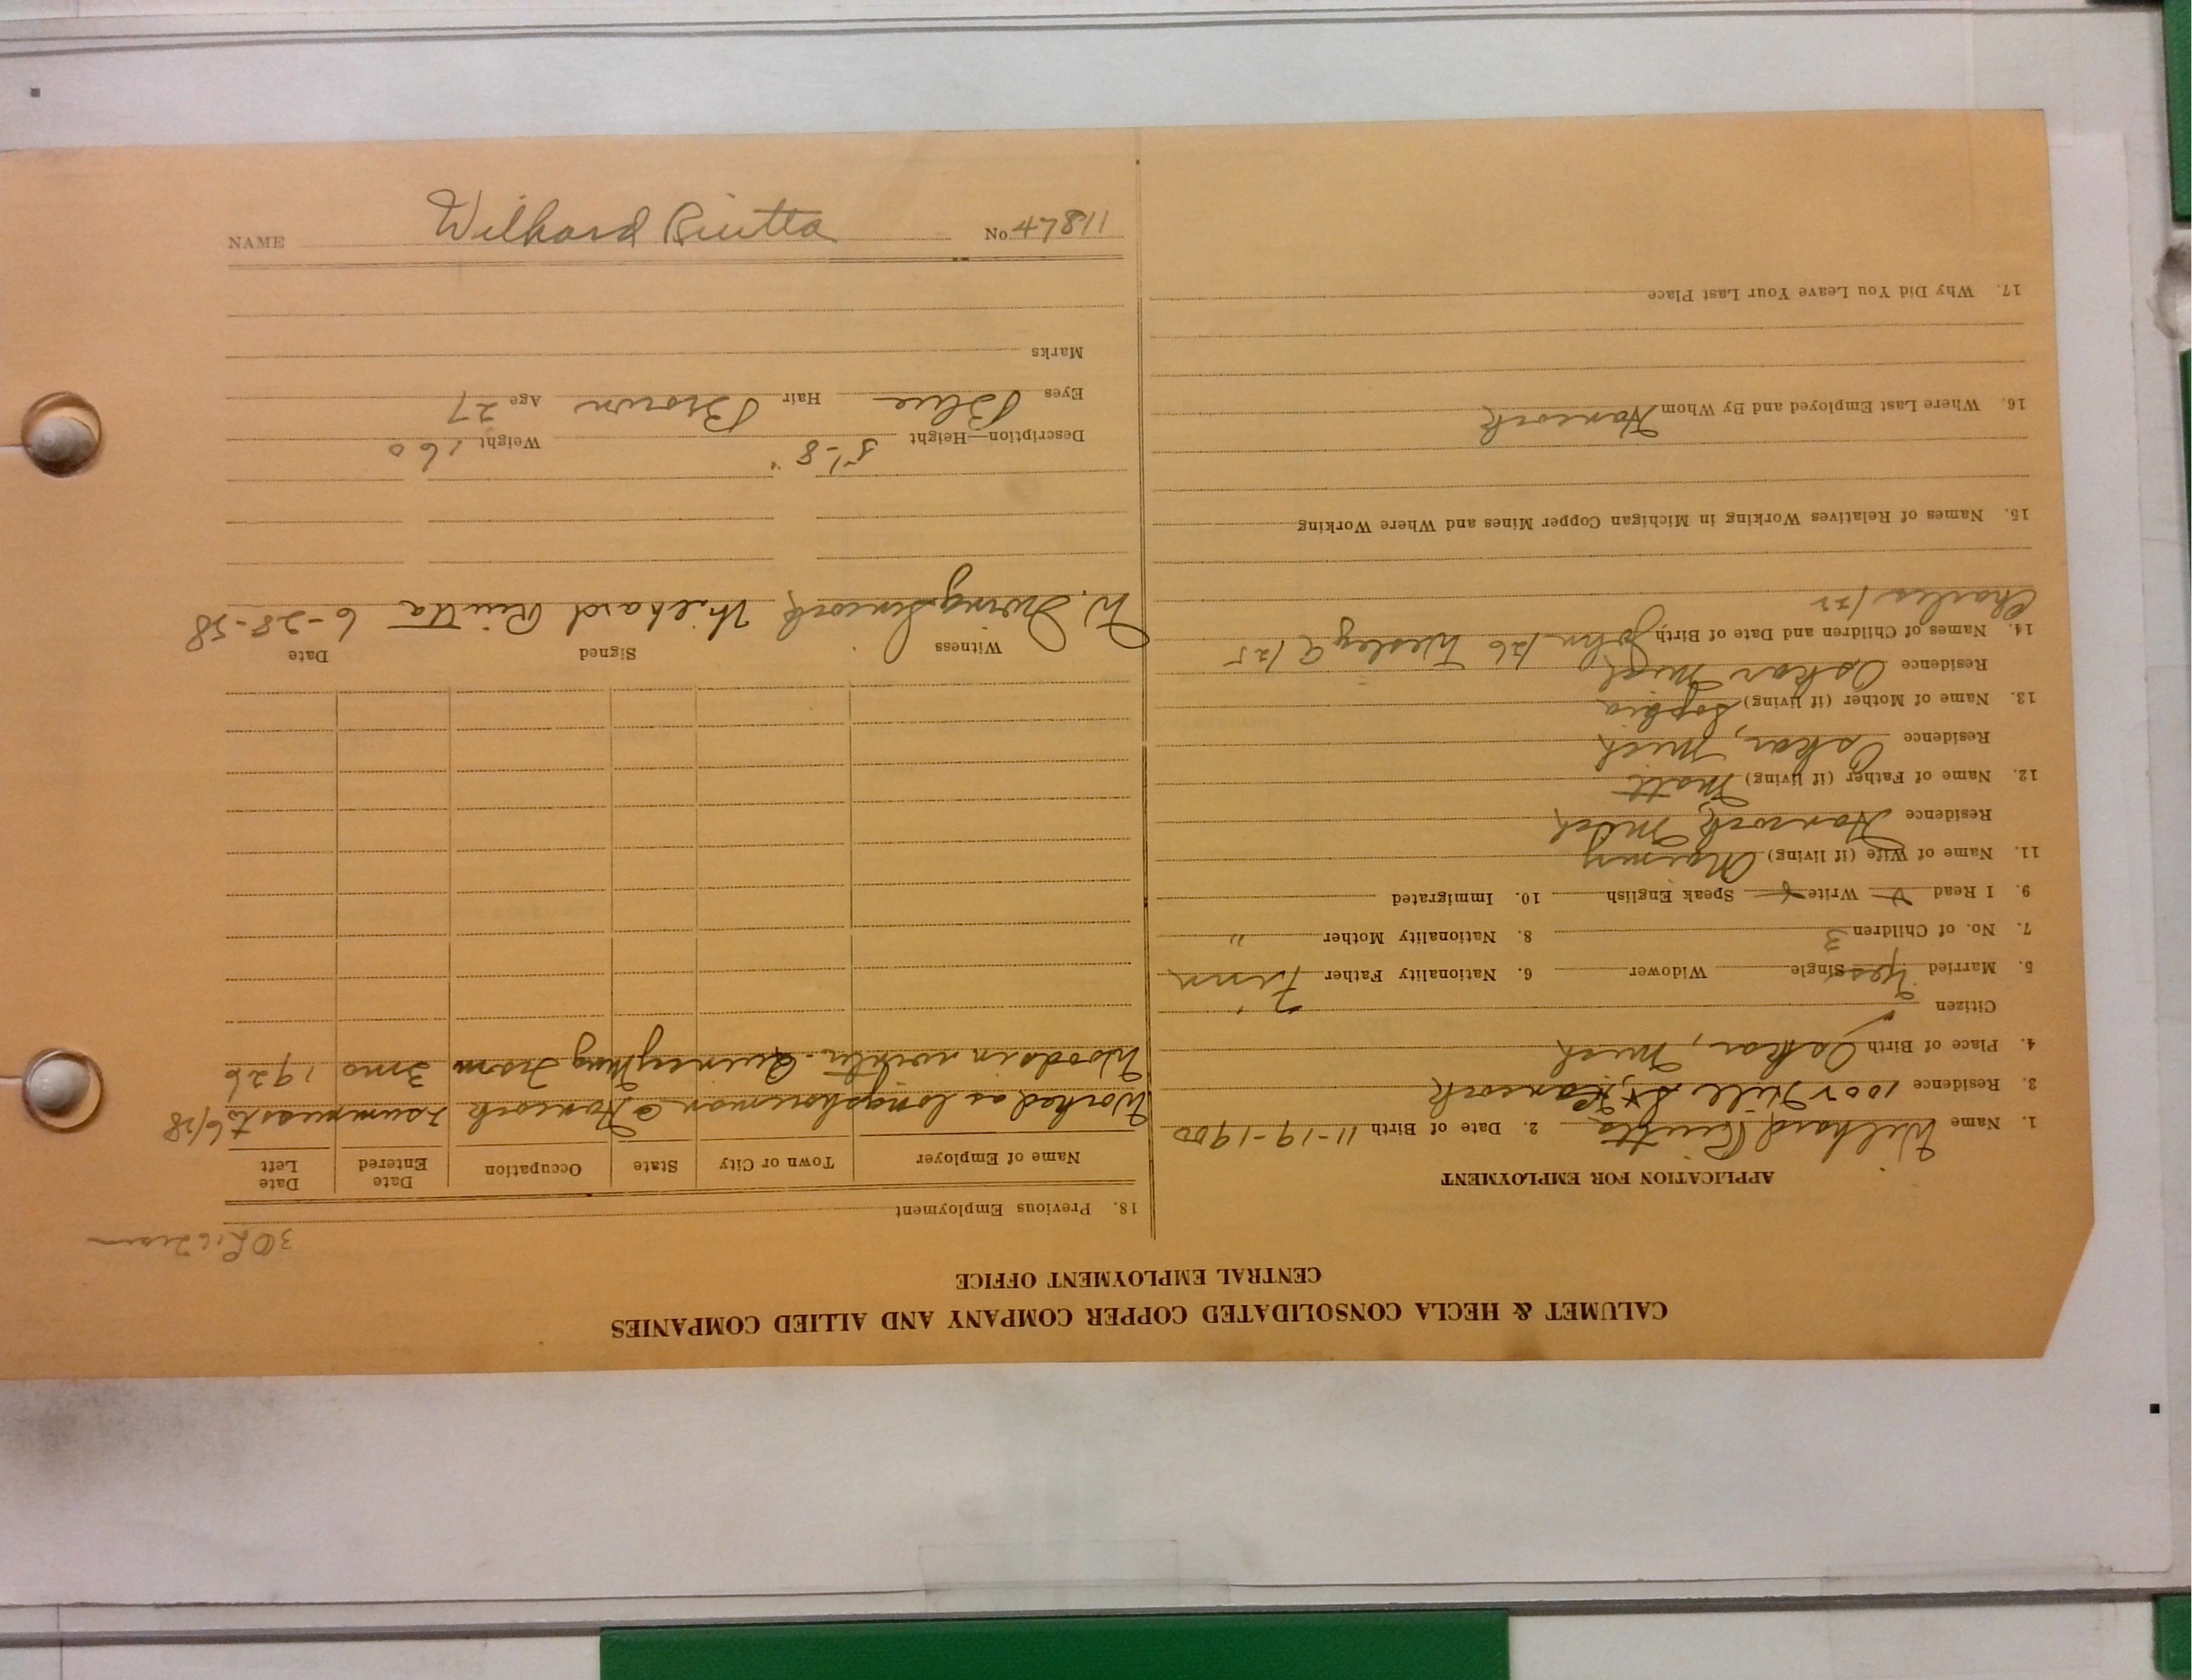 CALUMET & HECLA CONSOLIDATED COPPER COMPANY AND ALLIED COMPANIES
CENTRAL EMPLOYMENT OFFICE
APPLICATION FOR EMPLOYMENT
1. Name Wilhard Riutta 2. Date of Birth 11-19-1900
3. Residence Hill St, Hancock
4. Place of Birth Oskar, Mich
Citizen
5. Married Yes Single Widower 6. Nationality Father Finn
7. No. of Children 3 8. Nationality Mother "
9. I Read Write Speak English 10. Immigrated
11. Name of Wife (if living)
Residence Hancock, Mich
12. Name of Father (if living) Matt
Residence Oskar, Mich
13. Name of Mother (if living) Sophia
Residence Oskar Mich
14. Names of Children and Date of Birth John /26 Wesley /25
Charles /22
15. Names of Relatives Working in Michigan Copper Mines and Where Working
16. Where Last Employed and By Whom Hancock
17. Why Did You Leave Your Last Place
18. Previous Employment
Name of Employer Town or City State Occupation Date Entered Date Left
Worked as longshoreman @ Hancock 6/28
Woods in winter. Quincy Mng 3 mo 1926
Witness Signed Date
W. Wilhard Riutta 6-28-28
Description—Height 5'-8" Weight 160
Eyes Blue Hair Brown Age 27
Marks
NAME Wilhard Riutta No. 47811